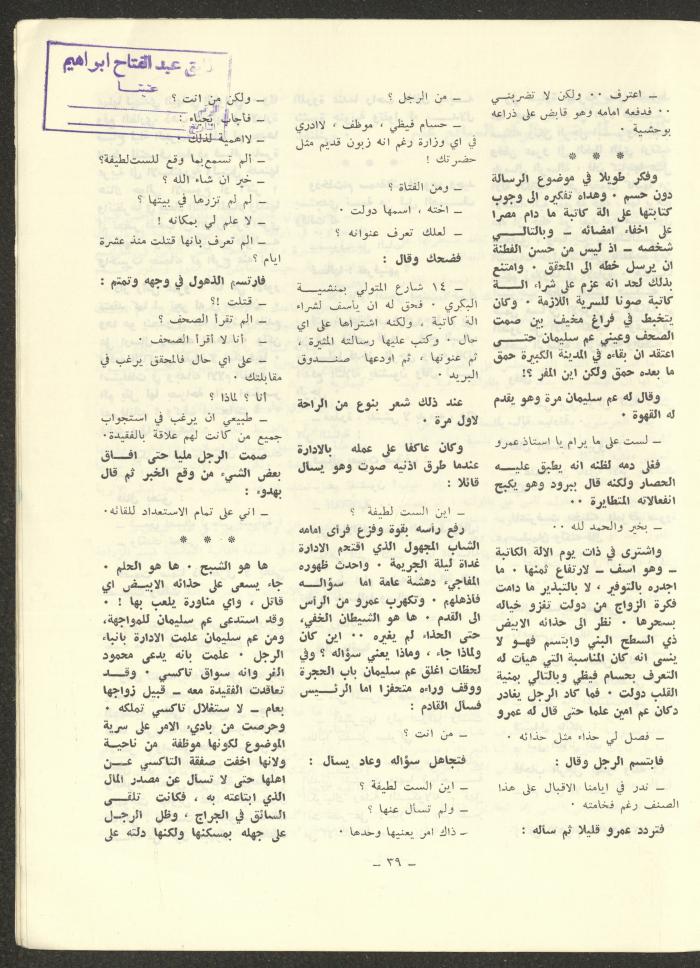 ـ اعترف ٠٠ ولكن لا تضربنـي
٠٠ فدفعه امامه وهو قابض على ذراعه
بوحشية ٠
* * *
وفكر طويلا في موضوع الرسالة
دون حسم ٠ وهداه تفكيره الى وجوب
كتابتها على الة كاتبة ما دام مصرا
على اخفاء امضائه ـ وبالتالـــي
شخصه ـ اذ ليس من حسن الفطنة
ان يرسل خطه الى المحقق ٠ وامتنع
بذلك لحد انه عزم على شراء الـــة
كاتبة صونا للسرية اللازمة ٠ وكان
يتخبط في فراغ مخيف بين صمت
الصحف وعيني عم سليمان حتـــى
اعتقد ان بقاءه في المدينة الكبيرة حمق
ما بعده حمق ولكن اين المفر ؟!
وقال له عم سليمان مرة وهو يقدم
له القهوة ٠
ـ لست على ما يرام يا استاذ عمرو
فغلى دمه لظنه انه يطبق عليـــه
الحصار ولكنه قال ببرود وهو يكبح
انفعالاته المتطايرة ٠٠
ـ بخير والحمد لله ٠٠
واشترى في ذات يوم الالة الكاتبة
ـ وهو اسف ـ لارتفاع ثمنها ٠ ما
اجدره بالتوفير ، لا بالتبذير ما دامت
فكرة الزواج من دولت تغزو خياله
بسحرها ٠ نظر الى حذائه الابيض
ذي السطح البني وابتسم فهـو لا
ينسى انه كان المناسبة التي هيأت له
التعرف بحسام فيظي وبالتالي بمنية
القلب دولت ٠ فما كاد الرجل يغادر
دكان عم امين علما حتى قال له عمرو
ـ فصل لي حذاء مثل حذائه ٠
فابتسم الرجل وقال :
ـ ندر في ايامنا الاقبال على هذا
الصنف رغم فخامته ٠
فتردد عمرو قليلا ثم سأله :
ـ من الرجل ؟
ـ حسام فيظي ، موظف ، لاادري
في اي وزارة رغم انه زبون قديم مثل
حضرتك !
ـ ومن الفتاة ؟
ـ اخته ، اسمها دولت ٠
ـ لعلك تعرف عنوانه ؟
فضحك وقال :
ـ ١٤ شارع المتولي بمنشيـــة
البكري ٠ فحق له ان يأسف لشراء
الة كاتبة ، ولكنه اشتراها على اي
حال ٠ وكتب عليها رسالته المثيرة ،
ثم عنونها ، ثم اودعها صنــدوق
البريد ٠
عند ذلك شعر بنوع من الراحة
لاول مرة ٠
وكان عاكفا على عمله بالادارة
عندما طرق اذنيه صوت وهو يسأل
قائلا :
ـ اين الست لطيفة ؟
رفع رأسه بقوة وفزع فرأى امامه
الشاب المجهول الذي اقتحم الادارة
غداة ليلة الجريمة ٠ واحدث ظهوره
المفاجيء دهشة عامة اما سؤالـــه
فأذهلهم ٠ وتكهرب عمرو من الرأس
الى القدم ٠ ها هو الشيطان الخفي،
حتى الحذاء لم يغيره ٠٠ اين كان
ولماذا جاء ، وماذا يعني سؤاله ؟ وفي
لحظات اغلق عم سليمان باب الحجرة
ووقف وراءه متحفزا اما الرئــيس
فسأل القادم :
ـ من انت ؟
فتجاهل سؤاله وعاد يسأل :
ـ اين الست لطيفة ؟
ـ ولم تسأل عنها ؟
ـ ذاك امر يعنيها وحدها ٠
عبد الفتاح ابراهيم
ـ ولكن من انت ؟
ـ فأجاب بحياء :
ـ لااهمية لذلك ٠
ـ ألم تسمع بما وقع للست لطيفة؟
ـ خير ان شاء الله ؟
ـ لم لم تزرها في بيتها ؟
ـ لا علم لي بمكانه !
ـ الم تعرف بأنها قتلت منذ عشرة
ايام ؟
فارتسم الذهول في وجهه وتمتم :
ـ قتلت !؟
ـ الم تقرأ الصحف ؟
ـ أنا لا أقرأ الصحف ٠
ـ على اي حال فالمحقق يرغب في
مقابلتك ٠
ـ أنا ؟ لماذا ؟
ـ طبيعي ان يرغب في استجواب
جميع من كانت لهم علاقة بالفقيدة٠
صمت الرجل مليا حتى افـــاق
بعض الشيء من وقع الخبر ثم قال
بهدوء :
ـ اني على تمام الاستعداد للقائه٠
* * *
ها هو الشبح ٠ ها هو الحلم ٠
جاء يسعى على حذائه الابيـض اي
قاتل ، واي مناورة يلعب بها ! ٠
وقد استدعى عم سليمان للمواجهة،
ومن عم سليمان علمت الادارة بأنباء
الرجل ٠ علمت بأنه يدعى محمود
الفر وانه سواق تاكسي ٠ وقـــد
تعاقدت الفقيدة معه ـ قبيل زواجها
بعام ـ لاستغلال تاكسي تملكه ٠
وحرصت من باديء الامر على سرية
الموضوع لكونها موظفة من ناحيـة
ولانها اخفت صفقة التاكسي عـــن
اهلها حتى لا تسأل عن مصدر المال
الذي ابتاعته به ، فكانت تلقـــى
السائق في الجراج ، وظل الرجـل
على جهله بمسكنها ولكنها دلته على
ـ ٣٩ ـ